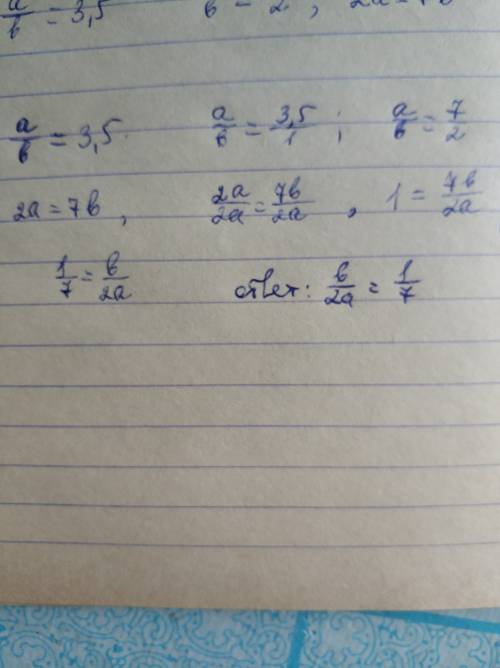 a/b = 3,5
a/b = 3,5 a/b = 3,5/1 ; a/b = 7/2
2a = 7b , 2a/2a = 7b/2a , 1 = 7b/2a
1/7 = b/2a ответ: b/2a = 1/7